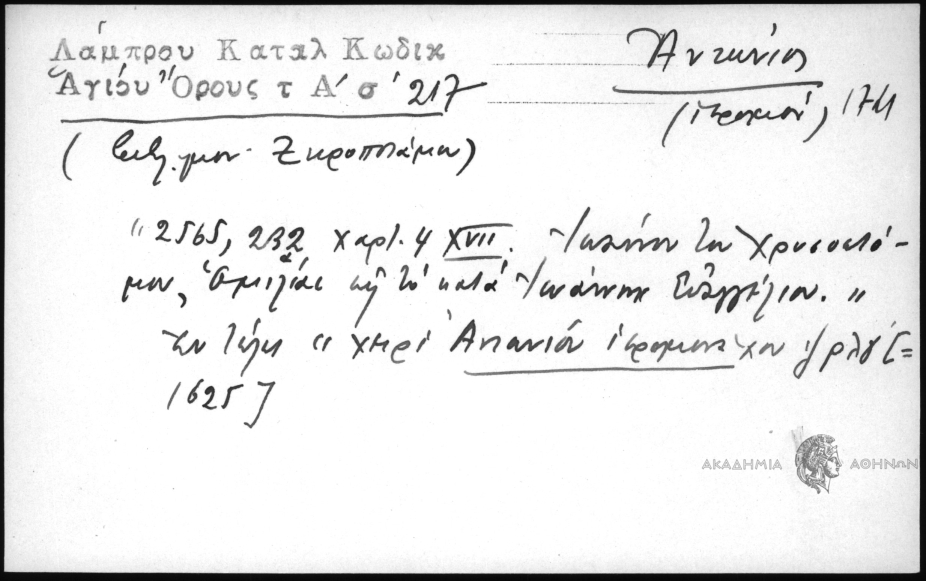 Λάμπρου Καταλ Κωδικ
Ἁγίου Ὄρους τ Α' σ' 217
Ἀντώνιος
(ἱερομον), 1711
(Βιβλ. μον. Ξηροποτάμου)
"2565, 232 χαρτ. 4 XVII. Ἰωάννου τοῦ Χρυσοστό-
μου, Ὁμιλίαι εἰς τὸ κατὰ Ἰωάννην Εὐαγγέλιον."
Ἐν τέλει "χειρὶ Ἀντωνίου ἱερομονάχου ͵ζρλγ' [=
1625]
ΑΚΑΔΗΜΙΑ ΑΘΗΝΩΝ